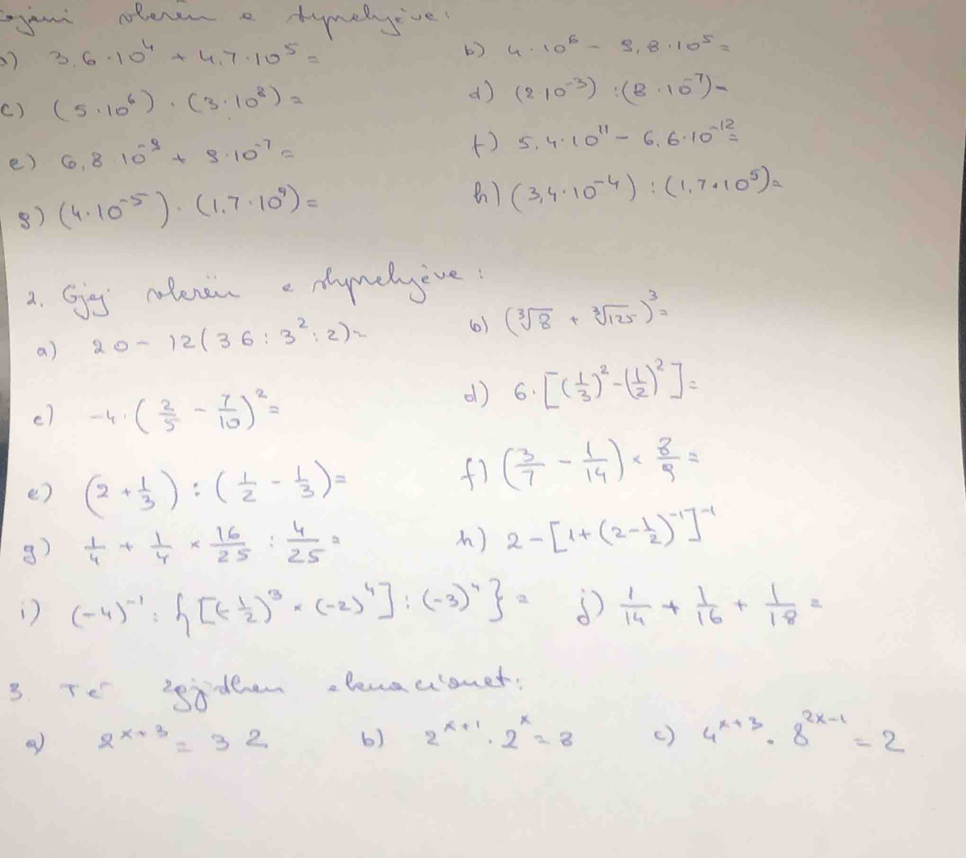 vlerën e shprehjeve:
3.6·10⁴ + 4,7·10⁵ = b) 4·10⁶ - 9,8·10⁵ =
c) (5·10⁶)·(3·10⁸) = d) (2·10⁻³) : (8·10⁻⁷) =
e) 6,8·10⁻⁹ + 9·10⁻⁷ = f) 5,4·10¹¹ - 6,6·10⁻¹² =
g) (4·10⁻⁵)·(1,7·10⁹) = h) (3,4·10⁻⁴) : (1,7·10⁵) =
2. Gjej vlerën e shprehjeve:
a) 20 - 12(36 : 3² : 2) = b) (∛8 + ∛125)³ =
c) -4·(2/5 - 7/10)² = d) 6·[(1/3)² - (1/2)²] =
e) (2 + 1/3) : (1/2 - 1/3) = f) (3/7 - 1/14) × 8/9 =
g) 1/4 + 1/4 × 16/25 : 4/25 = h) 2 - [1 + (2 - 1/2)⁻¹]⁻¹
i) (-4)⁻¹ : {[(-1/2)³ × (-2)⁴] : (-3)⁴} = j) 1/14 + 1/16 + 1/18 =
3. Të zgjidhen ekuacionet:
a) 2ˣ⁺³ = 32 b) 2ˣ⁺¹ · 2ˣ = 8 c) 4ˣ⁺³ · 8²ˣ⁻¹ = 2